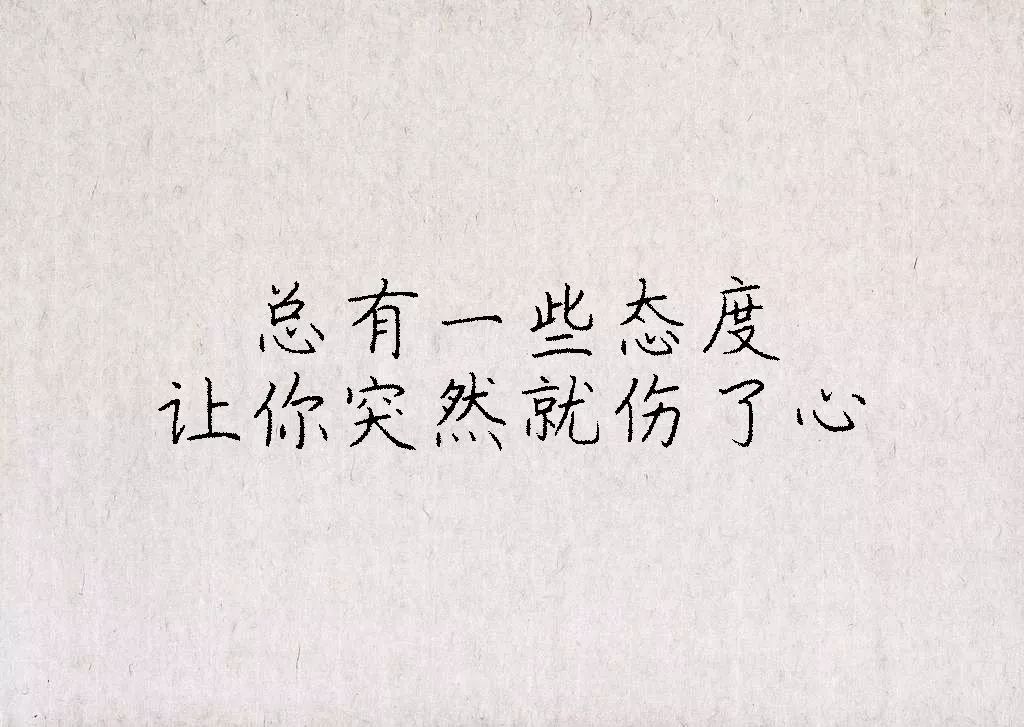 总有一些态度
让你突然就伤了心